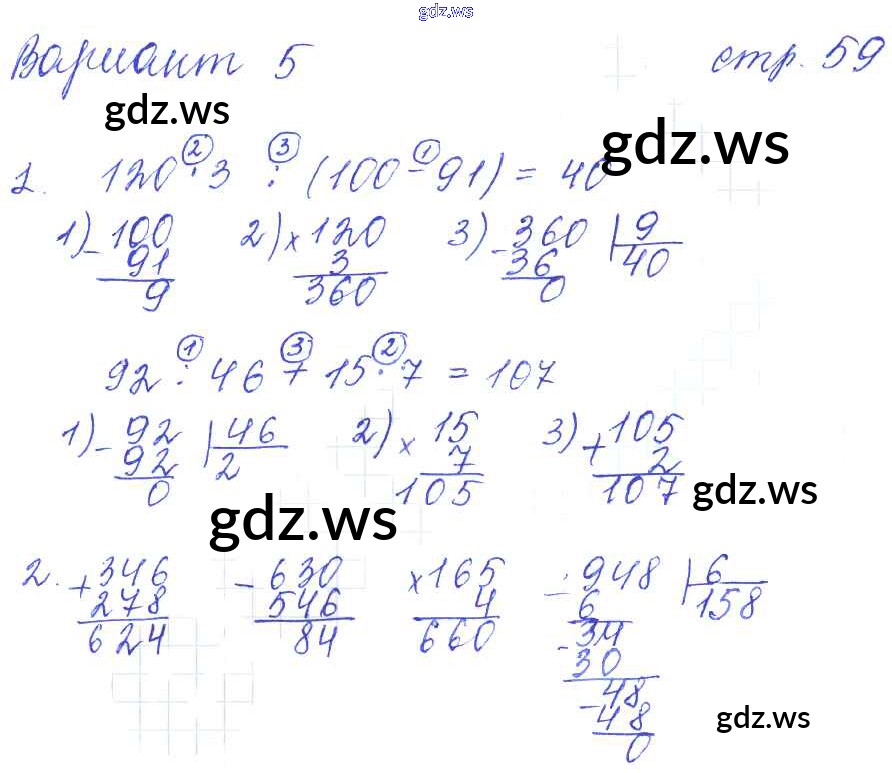 gdz.ws
Вариант 5 стр. 59
gdz.ws
gdz.ws
② ③ ①
1. 120 · 3 : (100 - 91) = 40
1) - 100 2) × 120 3) - 360 | 9
91 3 36 40
9 360 0
① ③ ②
92 : 46 + 15 · 7 = 107
1) - 92 | 46 2) × 15 3) + 105
92 2 7 2
0 105 107
gdz.ws
gdz.ws
2. + 346 - 630 × 165 - 948 | 6
278 546 4 6 158
624 84 660 - 34
30
- 48
48
0
gdz.ws